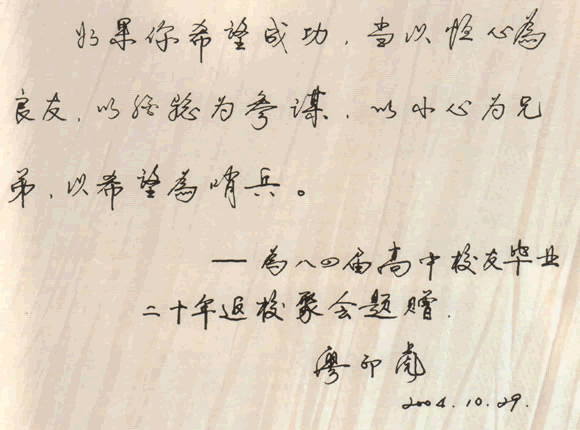 如果你希望成功,当以恒心為
良友,以经验为参谋,以小心为兄
弟,以希望為哨兵。
——為八四届高中校友毕业
二十年返校聚会题赠.
廖印彪
2004.10.29.